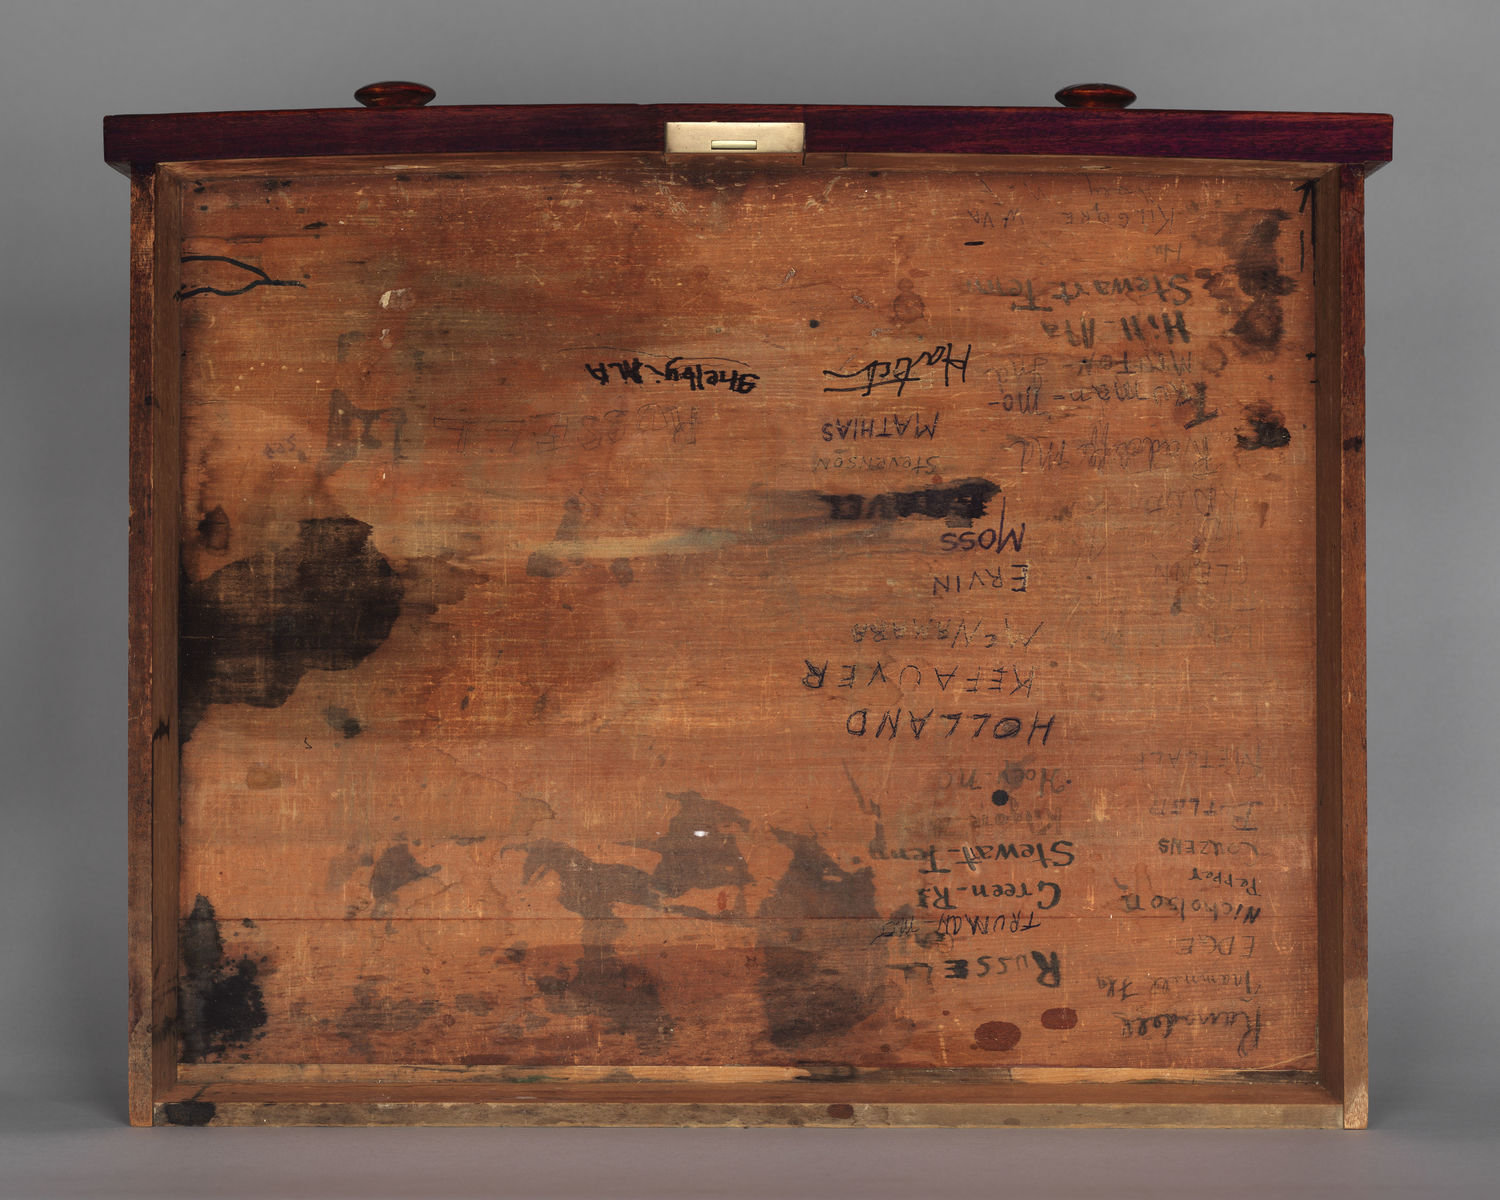 Ransdell
Trammell Fla
EDGE
Nicholson
Pepper
COUZENS
METCALF
Radcliffe Md
Truman- Mo-
MINTON- Ind
Hill-Ala
Stewart-Tenn
KILGORE W VA
RUSSELL
TRUMAN-MO
Green-RI
Stewart-Tenn
Hoey NC
HOLLAND
KEFAUVER
McNAMARA
ERVIN
MOSS
STEVENSON
MATHIAS
Hatch
RUSSELL
Shelby. ALA